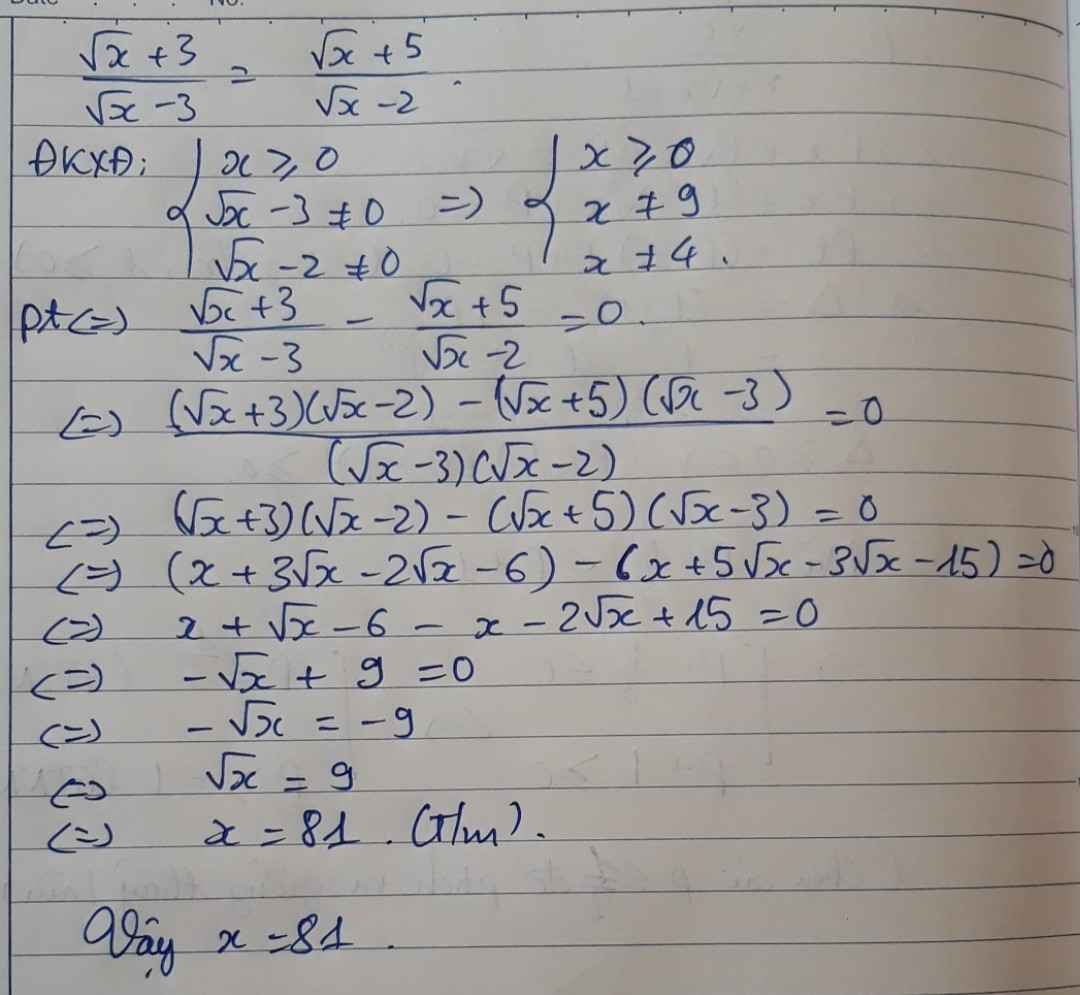 Date . . . No.
(√x + 3)/(√x - 3) = (√x + 5)/(√x - 2).
ĐKXĐ: { x ⩾ 0 ; √x - 3 ≠ 0 ; √x - 2 ≠ 0 => { x ⩾ 0 ; x ≠ 9 ; x ≠ 4.
pt <=> (√x + 3)/(√x - 3) - (√x + 5)/(√x - 2) = 0.
<=> ((√x+3)(√x-2) - (√x+5)(√x-3))/((√x-3)(√x-2)) = 0
<=> (√x+3)(√x-2) - (√x+5)(√x-3) = 0
<=> (x + 3√x - 2√x - 6) - (x + 5√x - 3√x - 15) = 0
<=> x + √x - 6 - x - 2√x + 15 = 0
<=> -√x + 9 = 0
<=> -√x = -9
<=> √x = 9
<=> x = 81. (T/m).
Vậy x = 81.